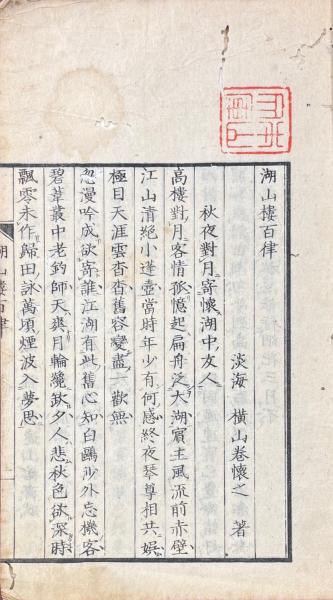 湖山樓百律
淡海 橫山卷懷之 著
秋夜對月寄懷湖中友人
高樓對月客情孤憶起扁舟泛太湖賓主風流前赤壁
江山清絕小蓬壺當時年少有何感終夜琴尊相共娛
極目天涯雲杳杳舊容變盡一歡無
忽漫吟成欲寄誰江湖有此舊心知白鷗沙外忘機客
碧葦叢中老釣師天爽月輪纔缺夕人悲秋色欲深時
飄零未作歸田詠萬頃煙波入夢思
湖山樓百律